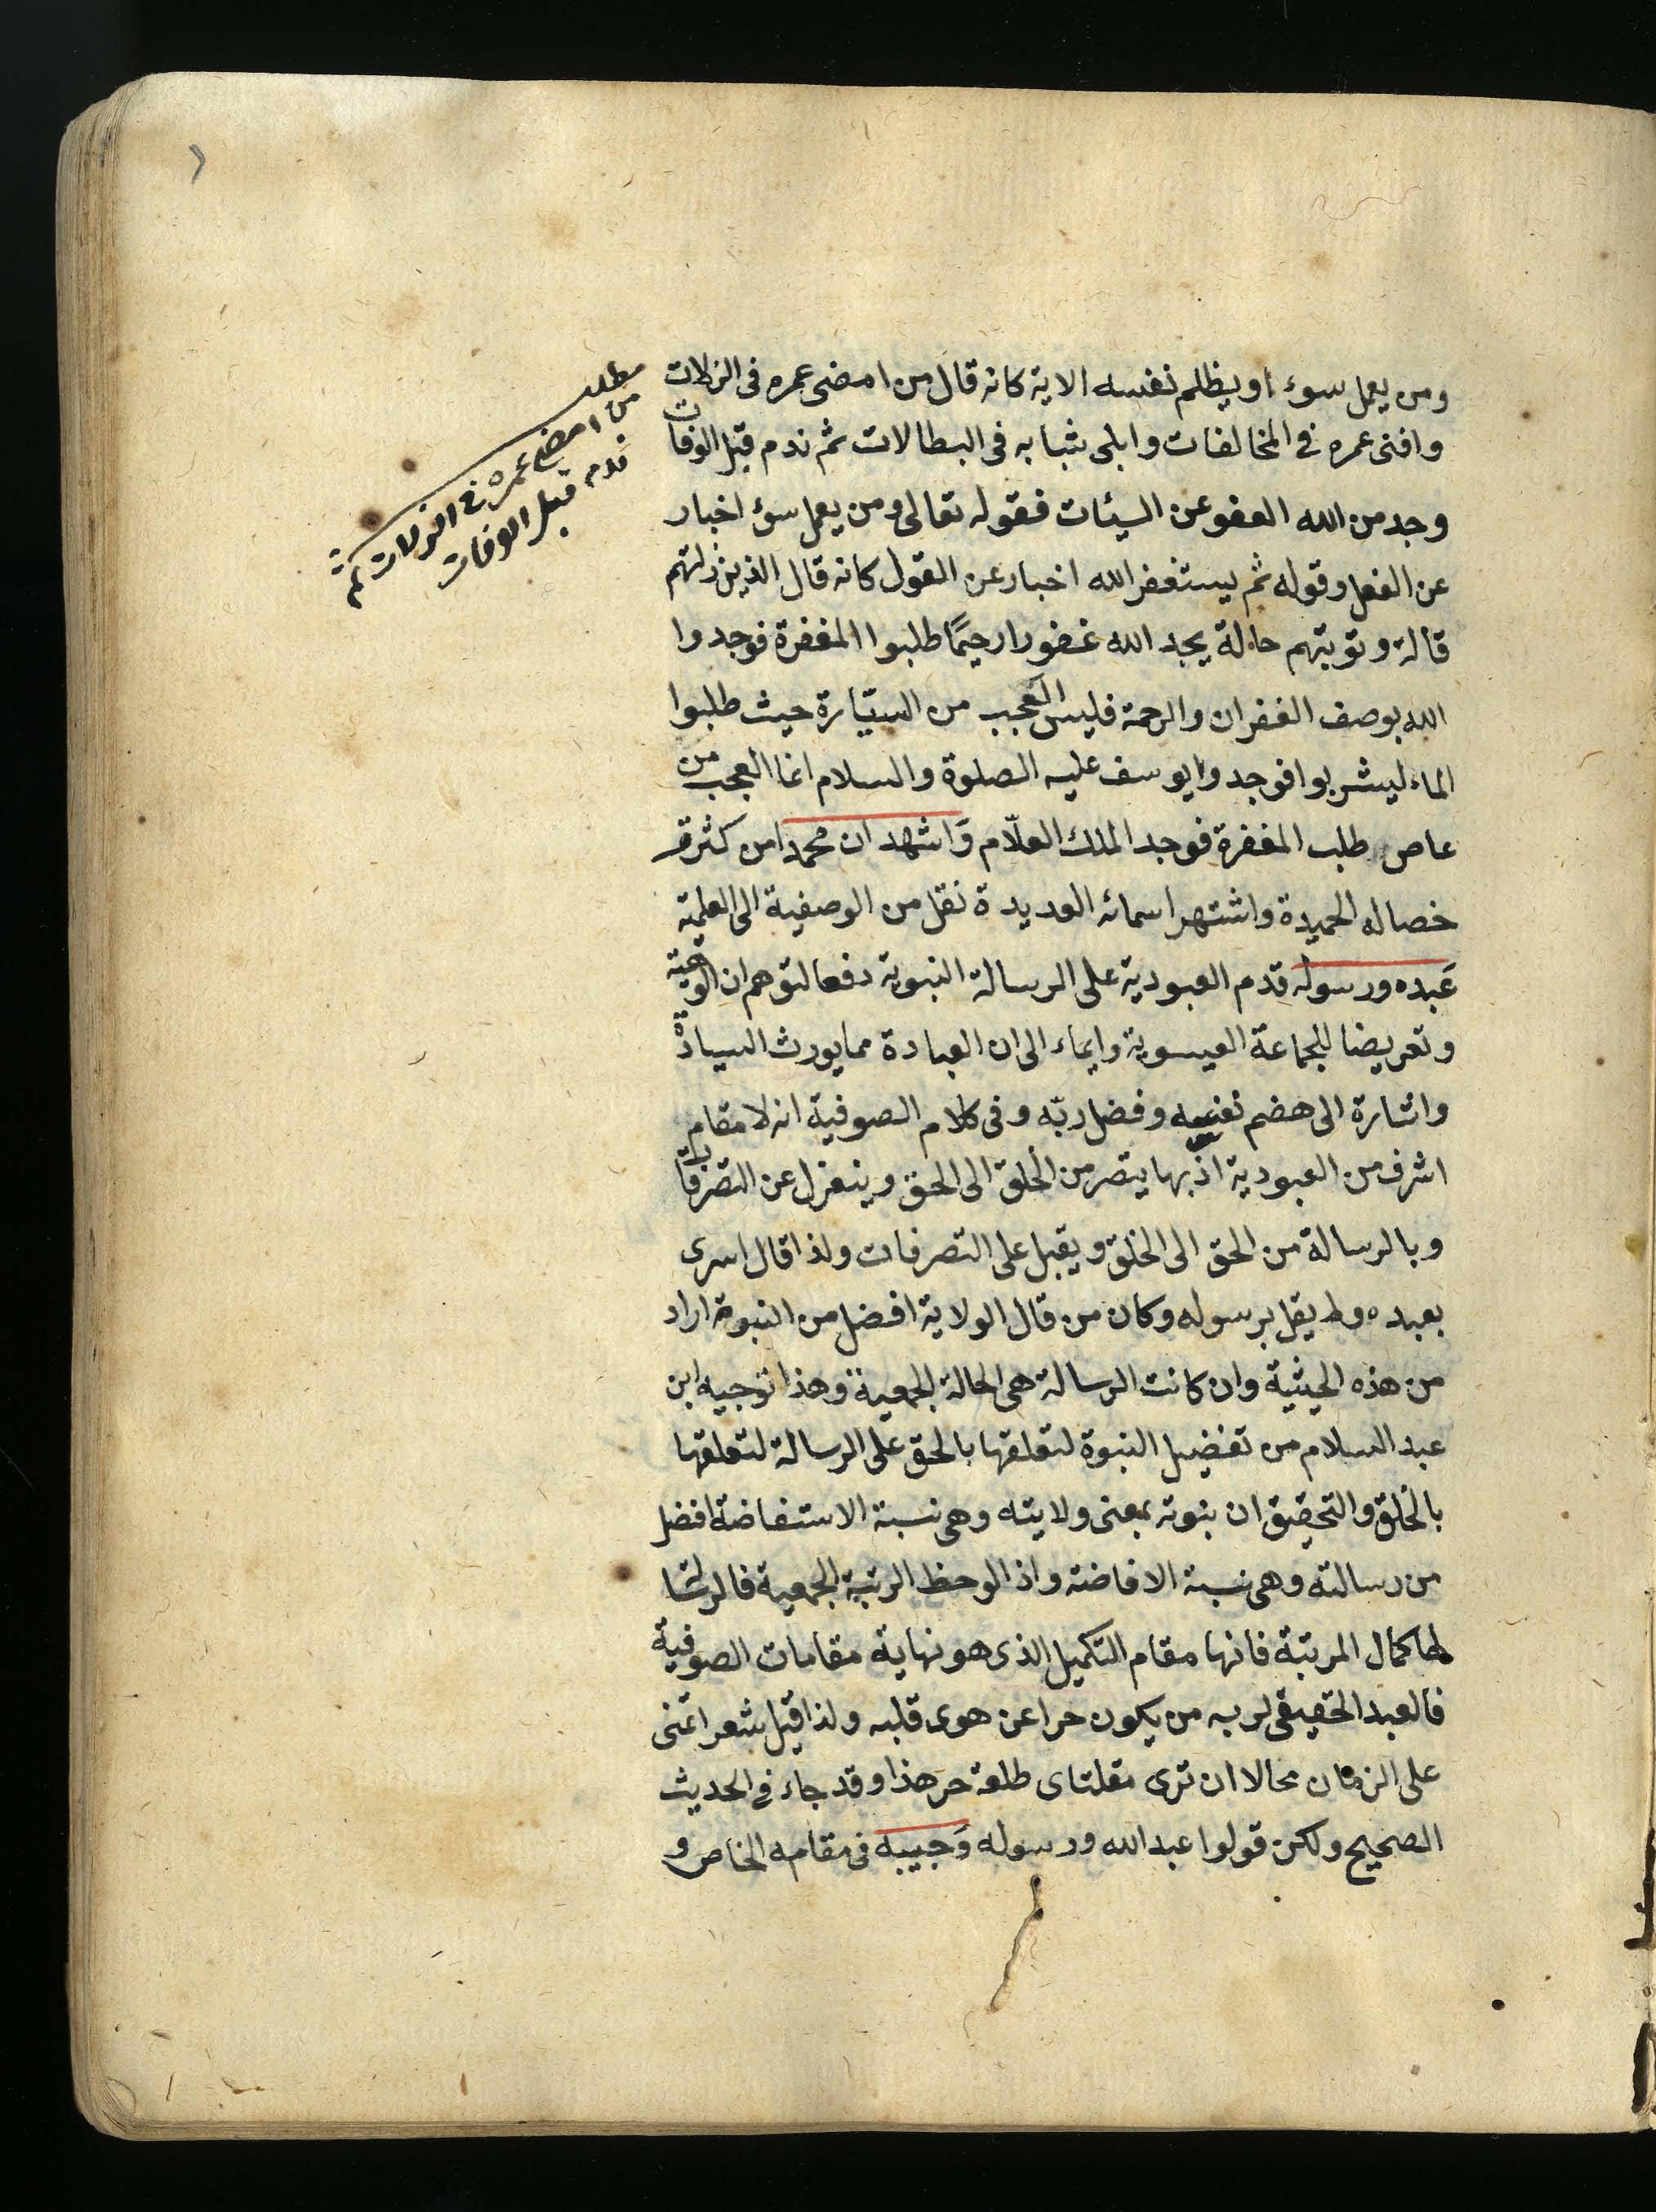 ومن يعمل سوء او يظلم نفسه الاية كانه قال من امضى عمره فى الزلات
وافنى عمره فى المخالفات وابلى شبابه فى البطالات ثم ندم قبل الوفات
وجد من الله العفو عن السيئات فقوله تعالى ومن يعمل سوء اخبار
عن الفعل وقوله ثم يستغفر الله اخبار عن القول كانه قال الذين زلتهم
قالة وتوبتهم حالة يجد الله غفورا رحيمًا طلبوا المغفرة فوجدوا
الله بوصف الغفران والرحمة فليس العجب من السيّارة حيث طلبوا
الماء ليشربوا فوجدوا يوسف عليه الصلوة والسلام انما العجب من
عاص طلب المغفرة فوجد الملك العلّام وَاشهد ان محمدا من كثرة
خصاله الحميدة واشتهر اسمائه العديدة نقل من الوصفية الى العلمية
عَبده ورسوله قدم العبودية على الرسالة النبوية دفعا لتوهم ان الوهية
وتعريضا للجماعة العيسوية وايماء الى ان العبادة مما يورث السيادة
واشارة الى هضم نفسه وفضل ربّه وفى كلام الصوفية انه لا مقام
اشرف من العبودية اذ بها يتصر من الخلق الى الحق وينعزل عن التصرفات
وبالرسالة من الحق الى الخلق ويقبل على التصرفات ولذا قال اسرى
بعبده ولم يقل برسوله وكان من قال الولاية افضل من النبوة اراد
من هذه الحيثية وان كانت الرسالة هى الحالة الجمعية وهذا توجيه ابن
عبد السلام من تفضيل النبوة لتعلقها بالحق على الرسالة لتعلقها
بالخلق والتحقيق ان نبوته بمعنى ولايته وهى نسبة الاستفاضة افضل
من رسالته وهى نسبة الافاضة واذا لوحظ الرتبة الجمعية فالرسالة
لها كمال المرتبة فانها مقام التكميل الذى هو نهاية مقامات الصوفية
فالعبد الحقيقى لربه من يكون حرا عن هوى قلبه ولذا قيل شعر اتمنى
على الزمان محالا ان ترى مقلتاى طلعة حر هذا وقد جاء فى الحديث
الصحيح ولكن قولوا عبد الله ورسوله وَحبيبه فى مقامه الخاص و
مطلب
من امضى عمره فى الزلات ثم
ندم قبل الوفات